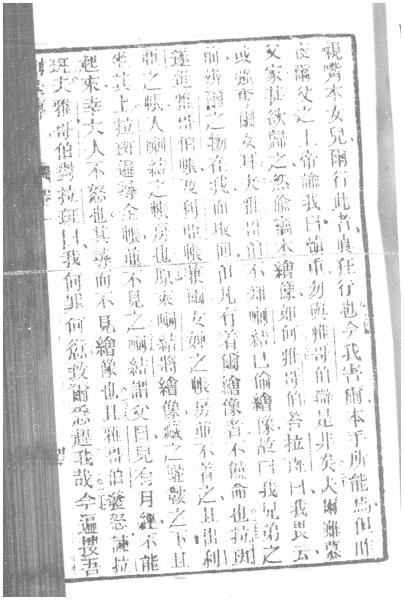 視嘴本女兒、爾行此者、真狂行也、今我害爾、本手所能焉、但昨
夜爾父之上帝諭我曰、慎重勿與雅哥伯辯是非矣、夫爾雖慕
父家、甚欲歸之、然偷竊本繪像如何、雅哥伯答拉班曰、我畏云、
或還奪爾女耳、夫雅哥伯不知喇結已偷繪像、故曰、我兄弟之
前、辨爾之物在我而取回、但凡有着爾繪像者、不饒命也、拉班
遂進雅哥伯帳、及利亞帳、兼兩女婢之帳房、並不着之、且出利
亞之帳、入喇結之帳房也、原來喇結將繪像藏之駝鞍之下、且
坐其上、拉班遍尋全帳、並不見之、喇結謂父曰、兒有月經、不能
起來、幸大人不怒也、其尋而不見繪像也、且雅哥伯發怒、諫拉
班、夫雅哥伯對拉班曰、我何罪何愆、致爾忿趕我哉、今遍搜吾